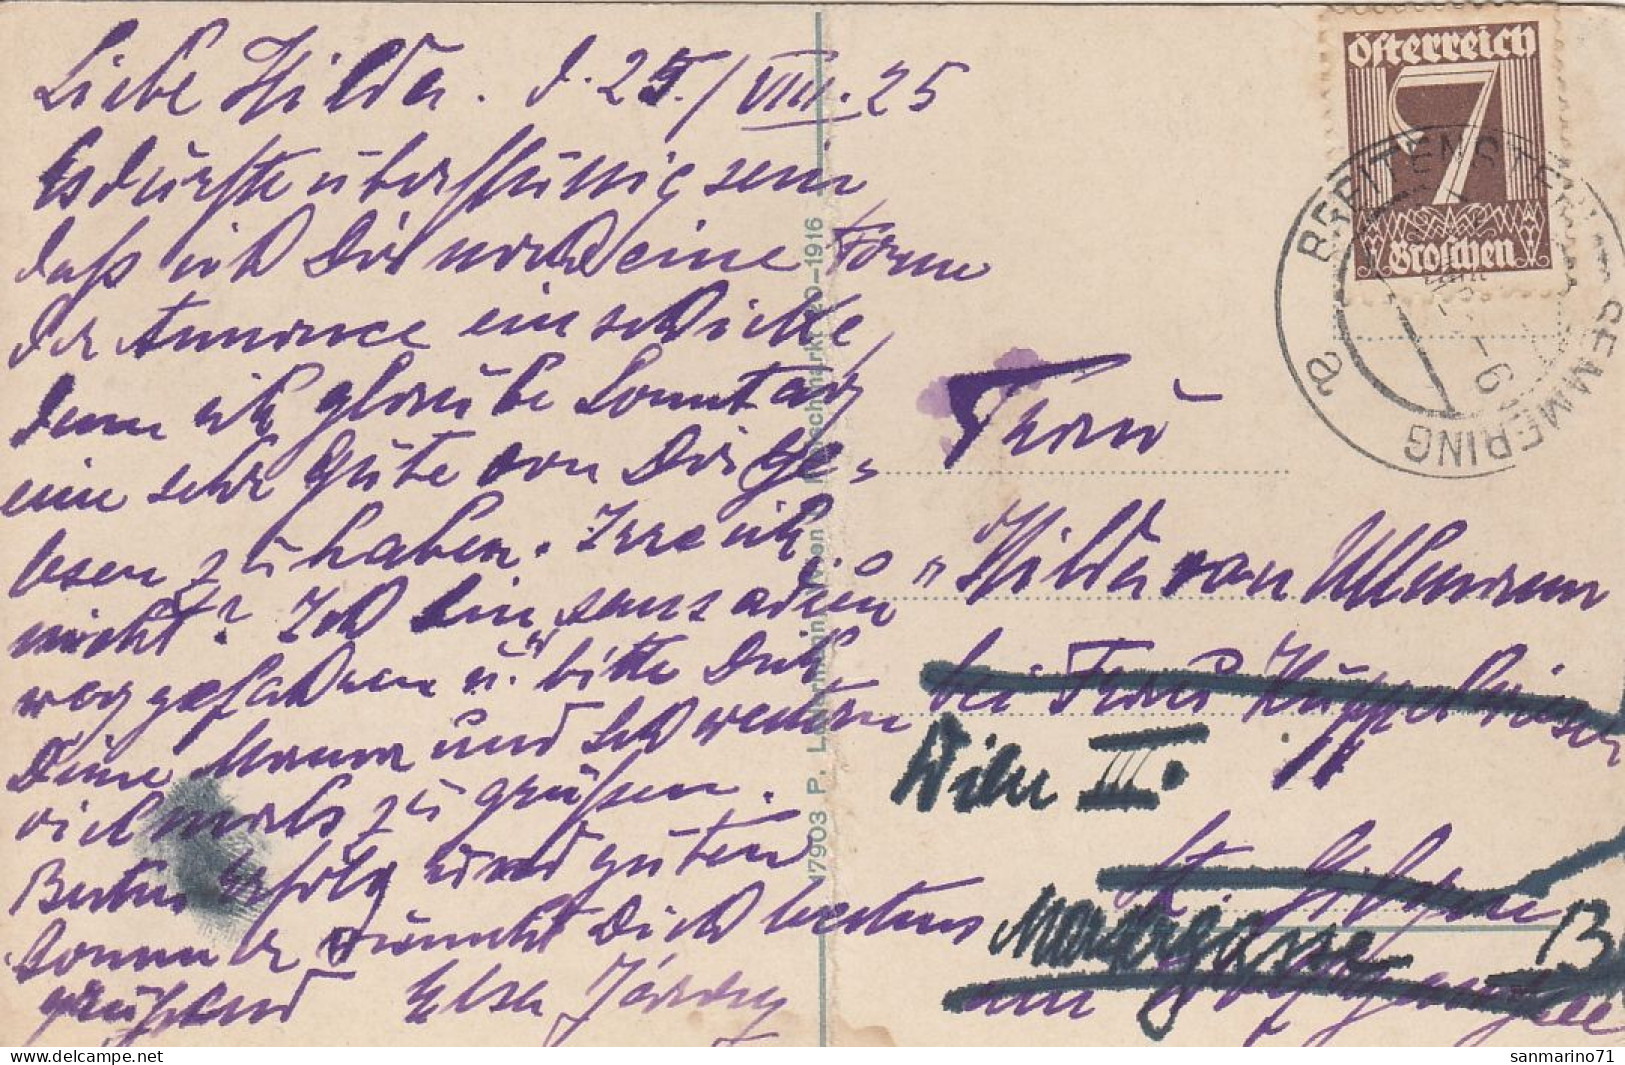 Liebe Hilda. d. 25./VIII. 25
Es dürfte überflüssig sein
daß ich Dir noch eine Form
der Annonce einschicke
denn ich glaube Sonntag
eine sehr gute von Dir ge-
lesen zu haben. Irre ich
nicht? Ich bin sans adieu
weggefahren u. bitte Dich
Deine Mama und Schwestern
vielmals zu grüßen.
Besten Erfolg und guten
Sommer wünscht Dich bestens
grüßend Elsa
17903 P. Ledermann, Wien I, Fleischmarkt 20–1916
Österreich
7
Groschen
BREITENSTEIN AM SEMMERING
a
Frau
Hilda von Ullmann
bei Frau
Wien III.
St. Gilgen
Marxergasse 13
am Wolfgangsee
sanmarino71